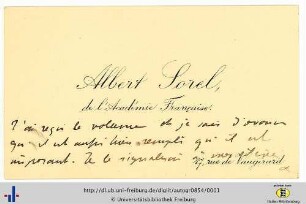 Albert Sorel,
de l'Académie Française.
J'ai reçu le volume et je sais d'avance
qu'il est aussi bien rempli qu'il est
imposant. Je le signalerai à mes élèves
rue de Vaugirard
http://dl.ub.uni-freiburg.de/diglit/autogr0854/0001
© Universitätsbibliothek Freiburg